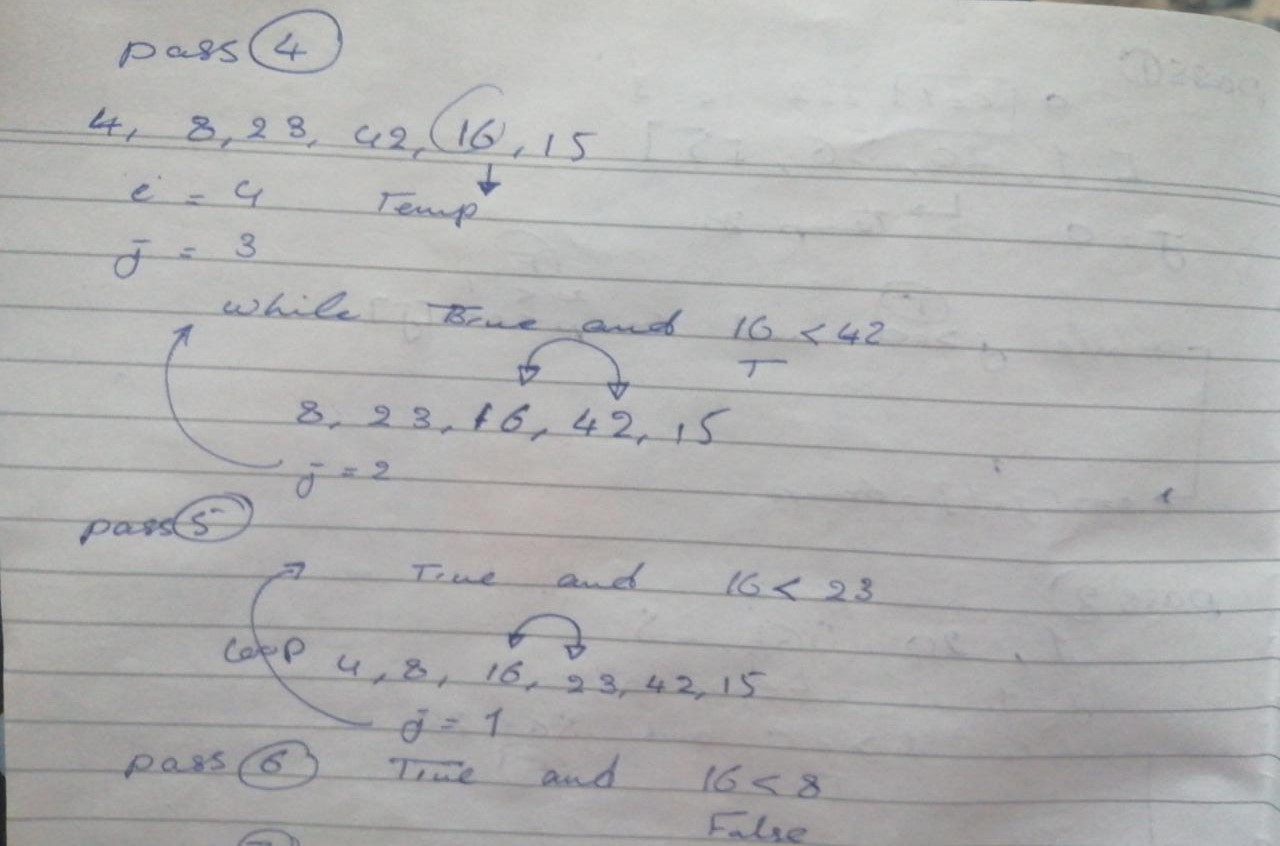 pass 4
4, 8, 23, 42, 16, 15
i = 4 Temp
j = 3
while True and 16 < 42
T
8, 23, 16, 42, 15
j = 2
pass 5
True and 16 < 23
Loop 4, 8, 16, 23, 42, 15
j = 1
pass 6 True and 16 < 8
False